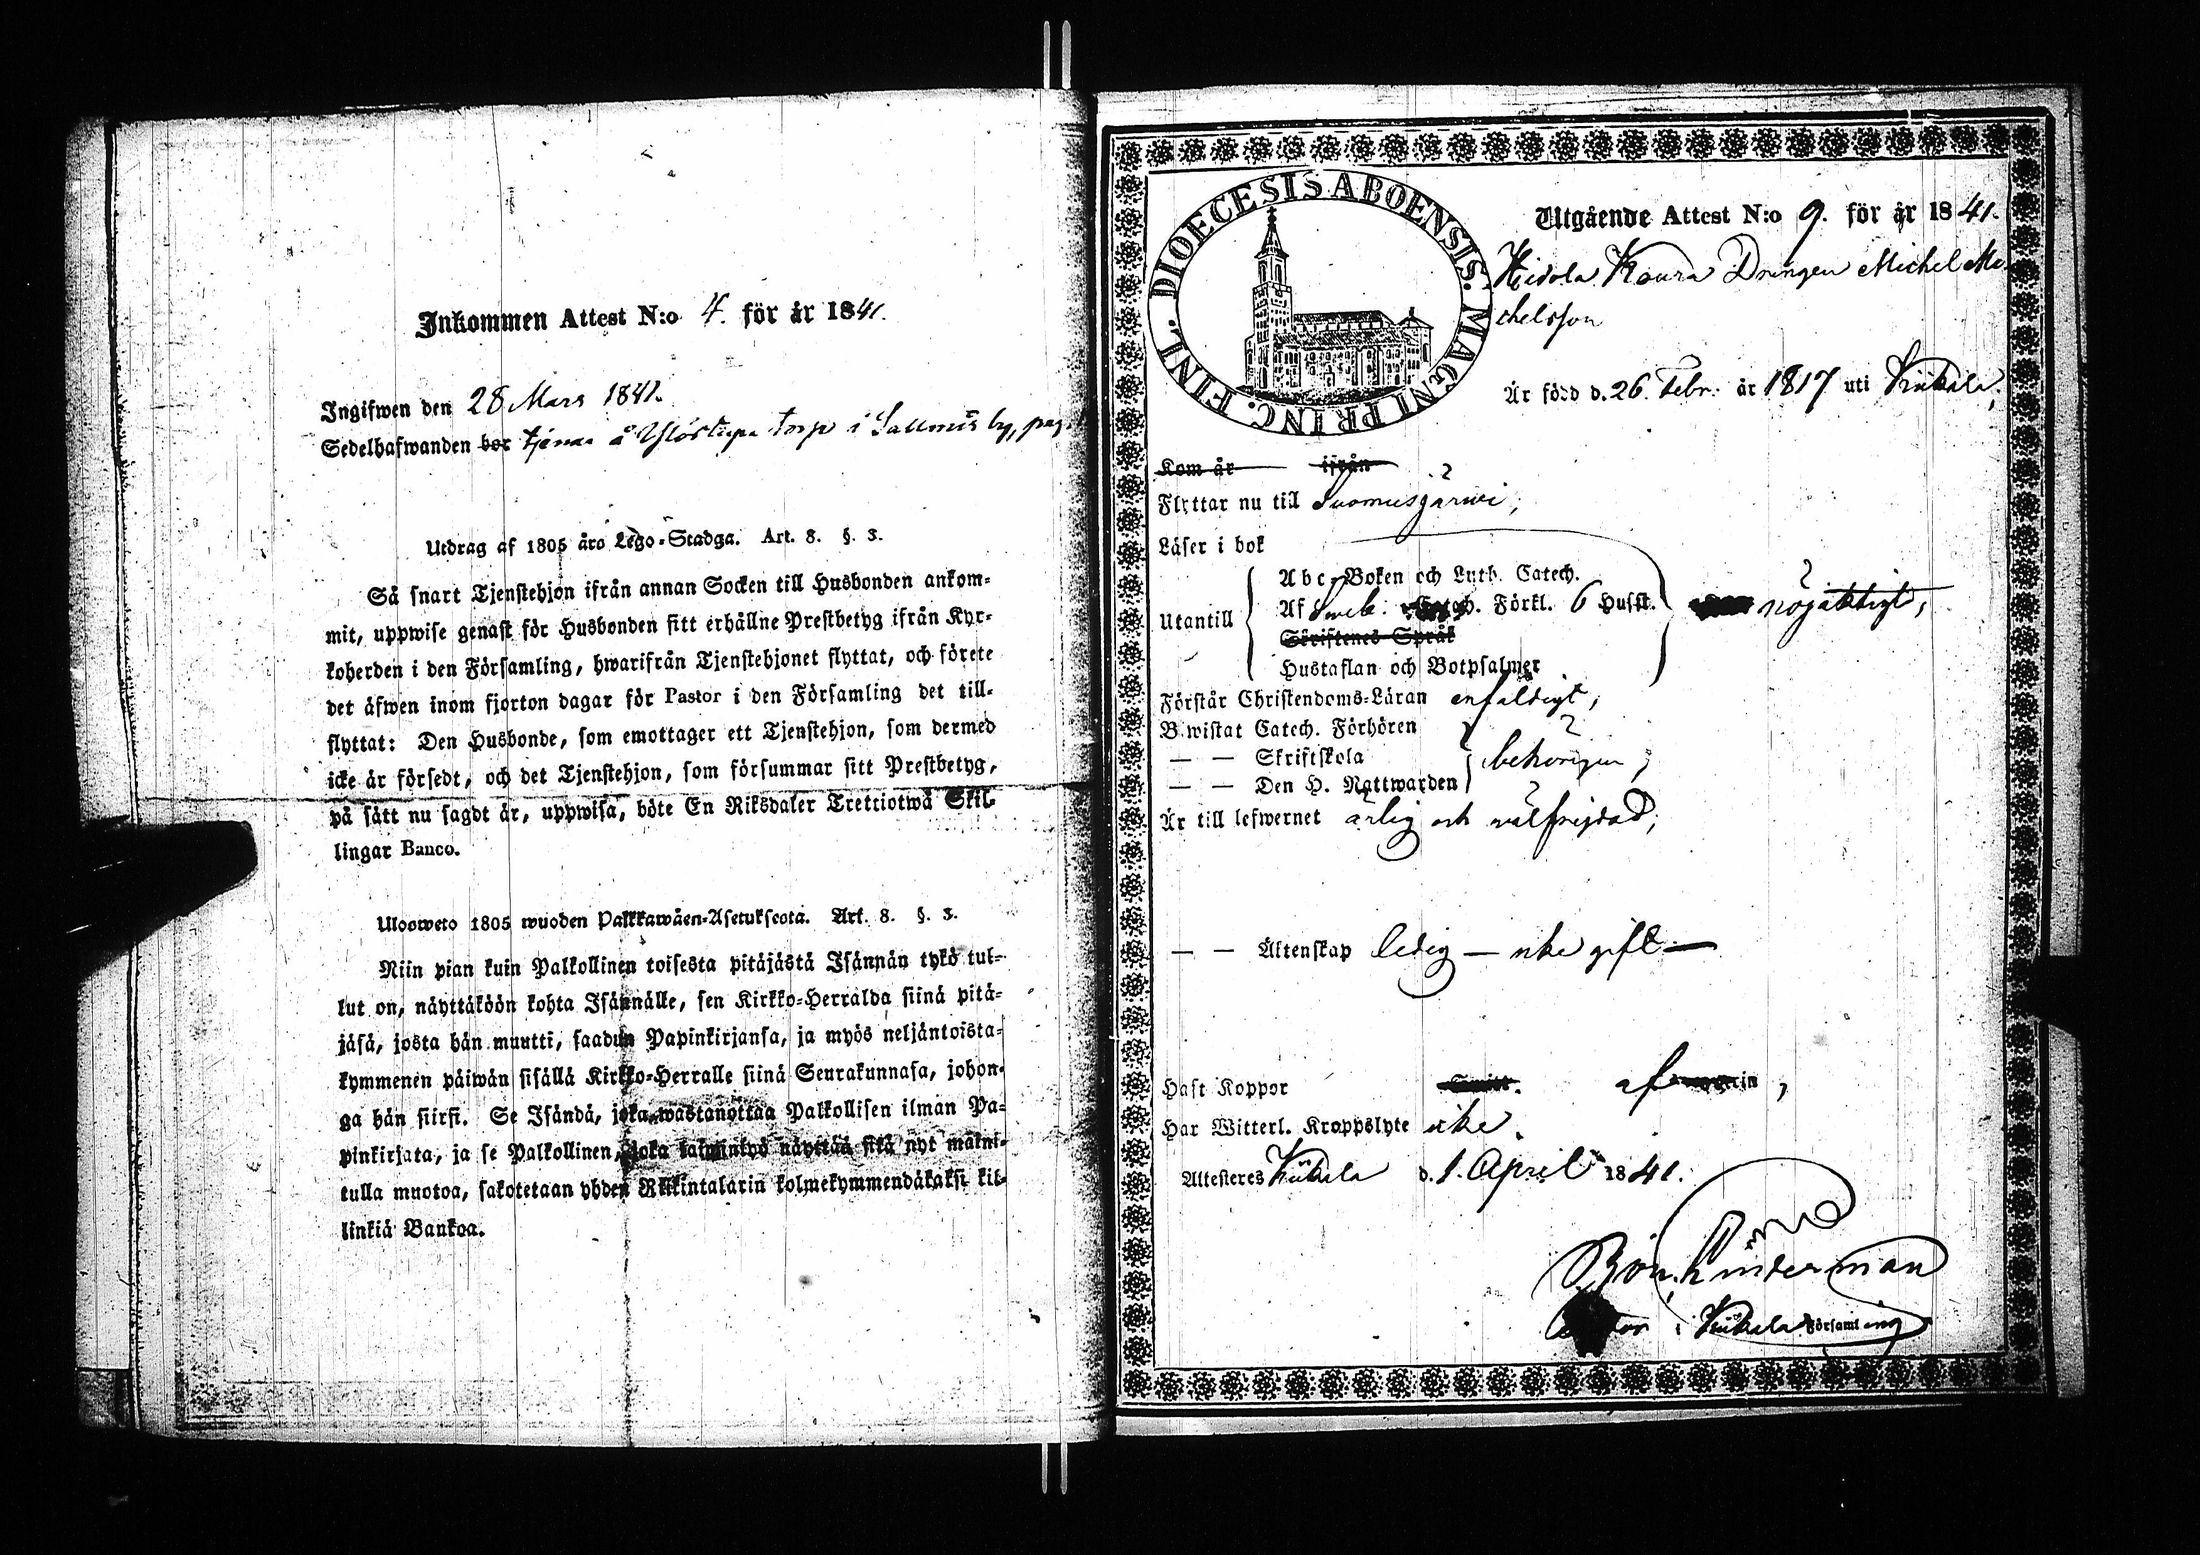 Inkommen Attest N:o 4. för år 1841.
Ingifwen den 28 Mars 1841.
Sedelhafwanden bor tjena å torp i by, pag.
Utdrag af 1805 års Lego-Stadga. Art. 8. §. 3.
Så snart Tjenstehjon ifrån annan Socken till Husbonden ankom-
mit, uppwise genast för Husbonden sitt erhållne Prestbetyg ifrån Kyr-
koherden i den Församling, hwarifrån Tjenstehjonet flyttat, och förete
det äfwen inom fjorton dagar för Pastor i den Församling det till-
flyttat: Den Husbonde, som emottager ett Tjenstehjon, som dermed
icke är försedt, och det Tjenstehjon, som försummar sitt Prestbetyg,
på sätt nu sagdt är, uppwisa, böte En Riksdaler Trettiotwå Skil-
lingar Banco.
Ulosweto 1805 wuoden Palkkawäen-Asetuksesta. Art. 8. §. 3.
Niin pian kuin Palkollinen toisesta pitäjästä Isännän tykö tul-
lut on, näyttäköön kohta Isännälle, sen Kirkko-Herralda siinä pitä-
jäsä, josta hän muutti, saadun Papinkirjansa, ja myös neljäntoista-
kymmenen päiwän sisällä Kirkko-Herralle siinä Seurakunnasa, johon-
ga hän siirsi. Se Isändä, joka wastanottaa Palkollisen ilman Pa-
pinkirjata, ja se Palkollinen, joka laiminlyö näyttää sitä nyt maini-
tulla muotoa, sakotetaan yhden Riikintalarin kolmekymmendäkaksi kil-
linkiä Bankoa.
DIOECESIS ABOENSIS. MAGNI PRINC. FINL.
Utgående Attest N:o 9. för år 1841.
Heidola Koura Drängen Michel Mi-
chelsson
Är född d. 26 Febr. år 1817 uti Kiikala,
Kom år ifrån
Flyttar nu till Suomusjärwi,
Läser i bok
Abc-Boken och Luth. Catech.
Utantill Af Sweb. Catech. Förkl. 6 Husst. nöjaktigt,
Skriftenes Språk
Hustaflan och Botpsalmer
Förstår Christendoms-Läran enfaldigt,
Bewistat Catech. Förhören
— — Skriftskola behörigen,
— — Den H. Nattwarden
Är till lefwernet ärlig och wälfrejdad,
— — Äktenskap ledig — icke gift —
Haft Koppor af
Har Witterl. Kroppslyte icke.
Attesteres Kiikala d. 1. April 1841.
Kiikala Församling